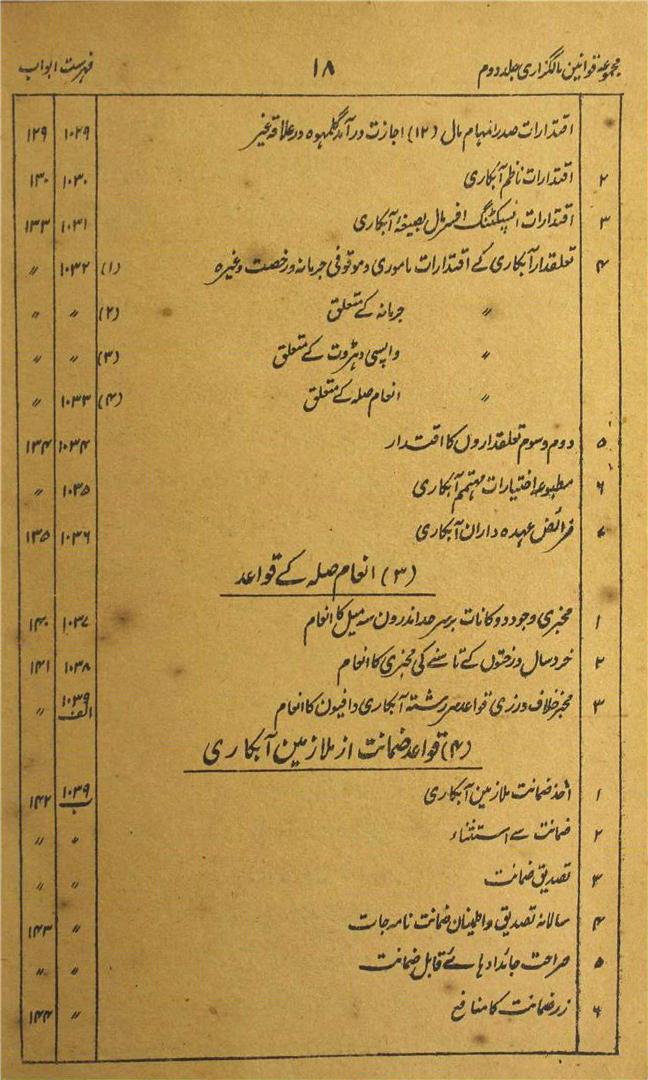 مجموعہ قوانین مالگزاری جلد دوم ۱۸ فہرست ابواب
اقتدارات صدر المہام مال (۱۲) اجازت درآمد گلمہوہ در علاقہ غیر ۱۰۲۹ ۱۲۹
۲ اقتدارات ناظم آبکاری ۱۰۳۰ ۱۳۰
۳ اقتدارات انسپکٹنگ افسر مال بصیغہ آبکاری ۱۰۳۱ ۱۳۳
۴ تعلقدار آبکاری کے اقتدارات ماموری و موقوفی جرمانہ و رخصت وغیرہ (۱) ۱۰۳۲ 〃
〃 جرمانہ کے متعلق (۲) 〃 〃
〃 واپسی دہڑوت کے متعلق (۳) 〃 〃
〃 انعام صلہ کے متعلق (۴) ۱۰۳۳ 〃
۵ دوم وسوم تعلقداروں کا اقتدار ۱۰۳۴ ۱۳۴
۶ مطبوعہ اختیارات مہتمم آبکاری ۱۰۳۵ 〃
۷ فرائض عہدہ داران آبکاری ۱۰۳۶ ۱۳۵
(۳) انعام صلہ کے قواعد
۱ مخبری وجود دوکانات برسرحد اندرون سہ میل کا انعام ۱۰۳۷ ۱۴۰
۲ خرد سال درختوں کے تاسنے کی مخبری کا انعام ۱۰۳۸ ۱۴۱
۳ مخبر خلاف ورزی قواعد سررشتہ آبکاری و افیون کا انعام ۱۰۳۹ الف 〃
(۴) قواعد ضمانت از ملازمین آبکاری
۱ اخذ ضمانت ملازمین آبکاری ۱۰۳۹ ب ۱۴۲
۲ ضمانت سے استثناء 〃 〃
۳ تصدیق ضمانت 〃 〃
۴ سالانہ تصدیق و اطمینان ضمانت نامہ جات 〃 ۱۴۳
۵ صراحت جائداد ہائے قابل ضمانت 〃 〃
۶ زر ضمانت کا منافع 〃 ۱۴۴